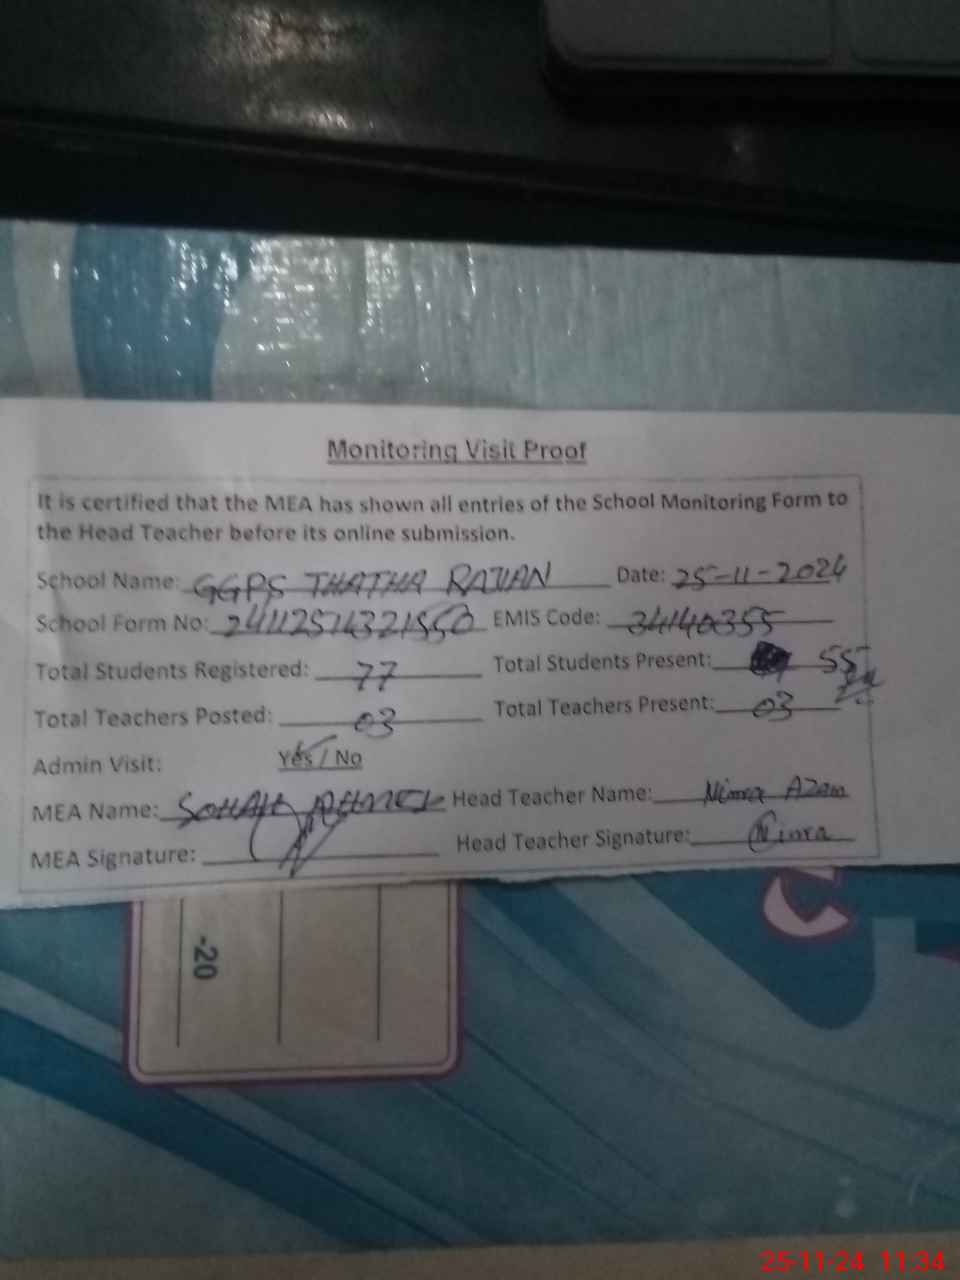 Monitoring Visit Proof
It is certified that the MEA has shown all entries of the School Monitoring Form to
the Head Teacher before its online submission.
School Name: GGPS THATHA RAJIAN Date: 25-11-2024
School Form No: EMIS Code: 34140355
Total Students Registered: 77 Total Students Present: 55
Total Teachers Posted: 03 Total Teachers Present: 03
Admin Visit: Yes / No
MEA Name: SOHAIL AHMED Head Teacher Name: Nimra Azam
MEA Signature: Head Teacher Signature: Nimra
-20
25-11-24 11:34